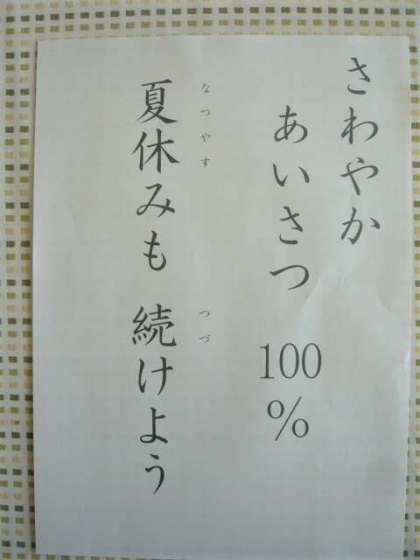 さわやか
あいさつ 100%
なつやす
夏休みも 続けよう
つづ